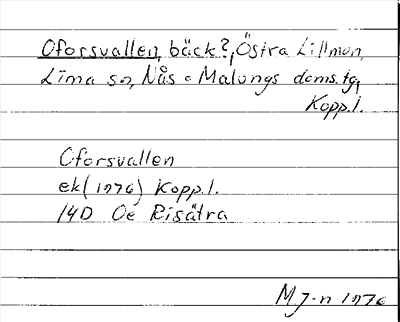 Oforsvallen, bäck?, Östra Lillmon,
Lima sn, Nås o Malungs doms. tg,
Kopp. l.
Oforsvallen
ek (1976) Kopp. l.
14D 0e Risätra
M J-n 1976